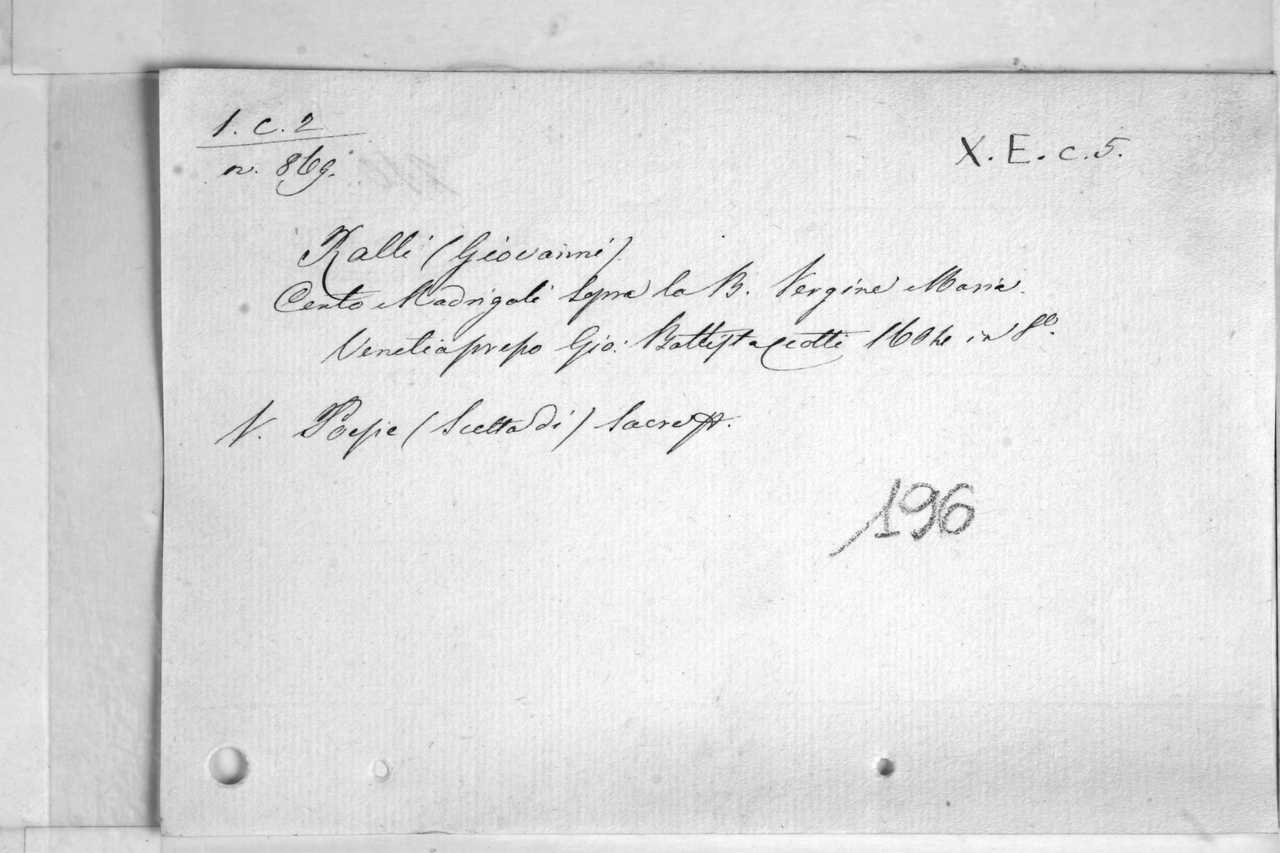 1. C. 2
n. 869.
X. E. c. 5.
Ralli (Giovanni)
Cento Madrigali sopra la B. Vergine Maria.
Venetia presso Gio: Battista Ciotti 1604 in 8º.
V. Poesie (Scelta di) Sacre
196